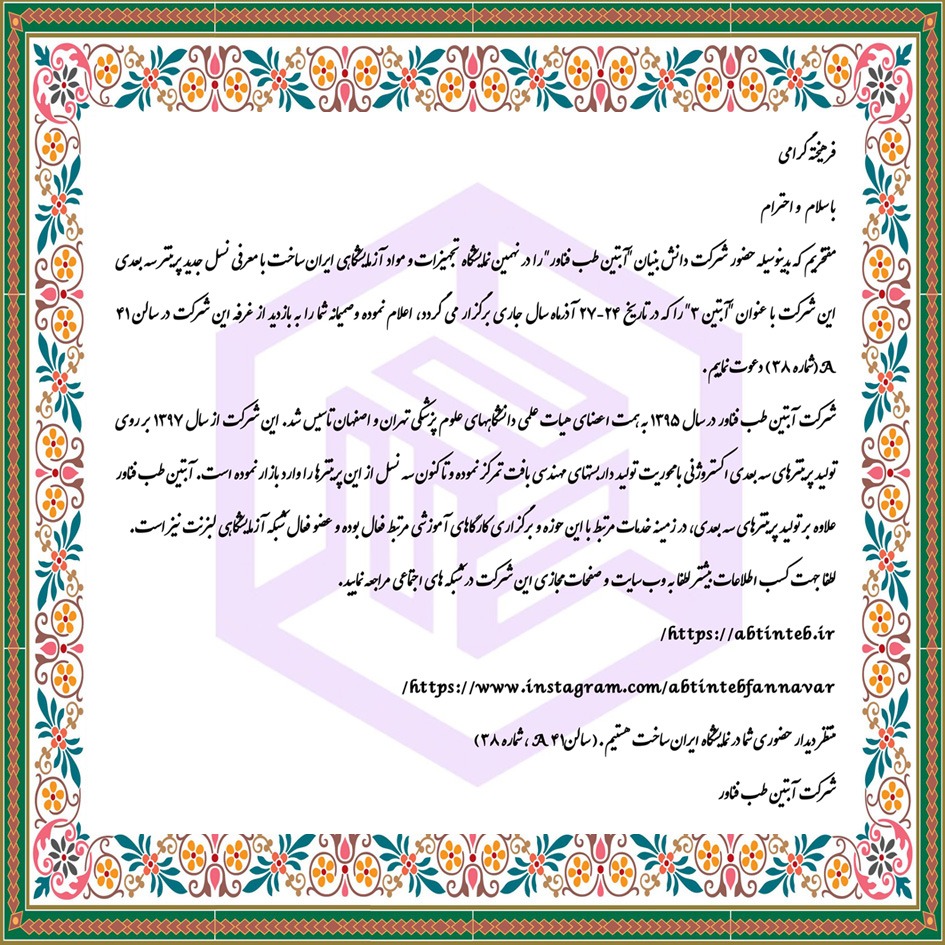 فرهیخته گرامی
با سلام و احترام
مفتخریم که بدینوسیله حضور شرکت دانش بنیان "آبتین طب فناور" را در نهمین نمایشگاه تجهیزات و مواد آزمایشگاهی ایران ساخت با معرفی نسل جدید پرینتر سه بعدی
این شرکت با عنوان "آبتین ۳" را که در تاریخ ۲۴-۲۷ آذرماه سال جاری برگزار می گردد، اعلام نموده و صمیمانه شما را به بازدید از غرفه این شرکت در سالن ۴۱
A (شماره ۳۸) دعوت نماییم.
شرکت آبتین طب فناور در سال ۱۳۹۵ به همت اعضای هیات علمی دانشگاههای علوم پزشکی تهران و اصفهان تاسیس شد. این شرکت از سال ۱۳۹۷ بر روی
تولید پرینترهای سه بعدی اکستروژنی با محوریت تولید داربستهای مهندسی بافت تمرکز نموده و تاکنون سه نسل از این پرینترها را وارد بازار نموده است. آبتین طب فناور
علاوه بر تولید پرینترهای سه بعدی، در زمینه خدمات مرتبط با این حوزه و برگزاری کارگاهای آموزشی مرتبط فعال بوده و عضو فعال شبکه آزمایشگاهی لبزنت نیز است.
لطفا جهت کسب اطلاعات بیشتر لطفا به وب سایت و صفحات مجازی این شرکت در شبکه های اجتماعی مراجعه نمایید.
https://abtinteb.ir/
https://www.instagram.com/abtintebfannavar/
منتظر دیدار حضوری شما در نمایشگاه ایران ساخت هستیم. (سالن ۴۱ A ، شماره ۳۸)
شرکت آبتین طب فناور